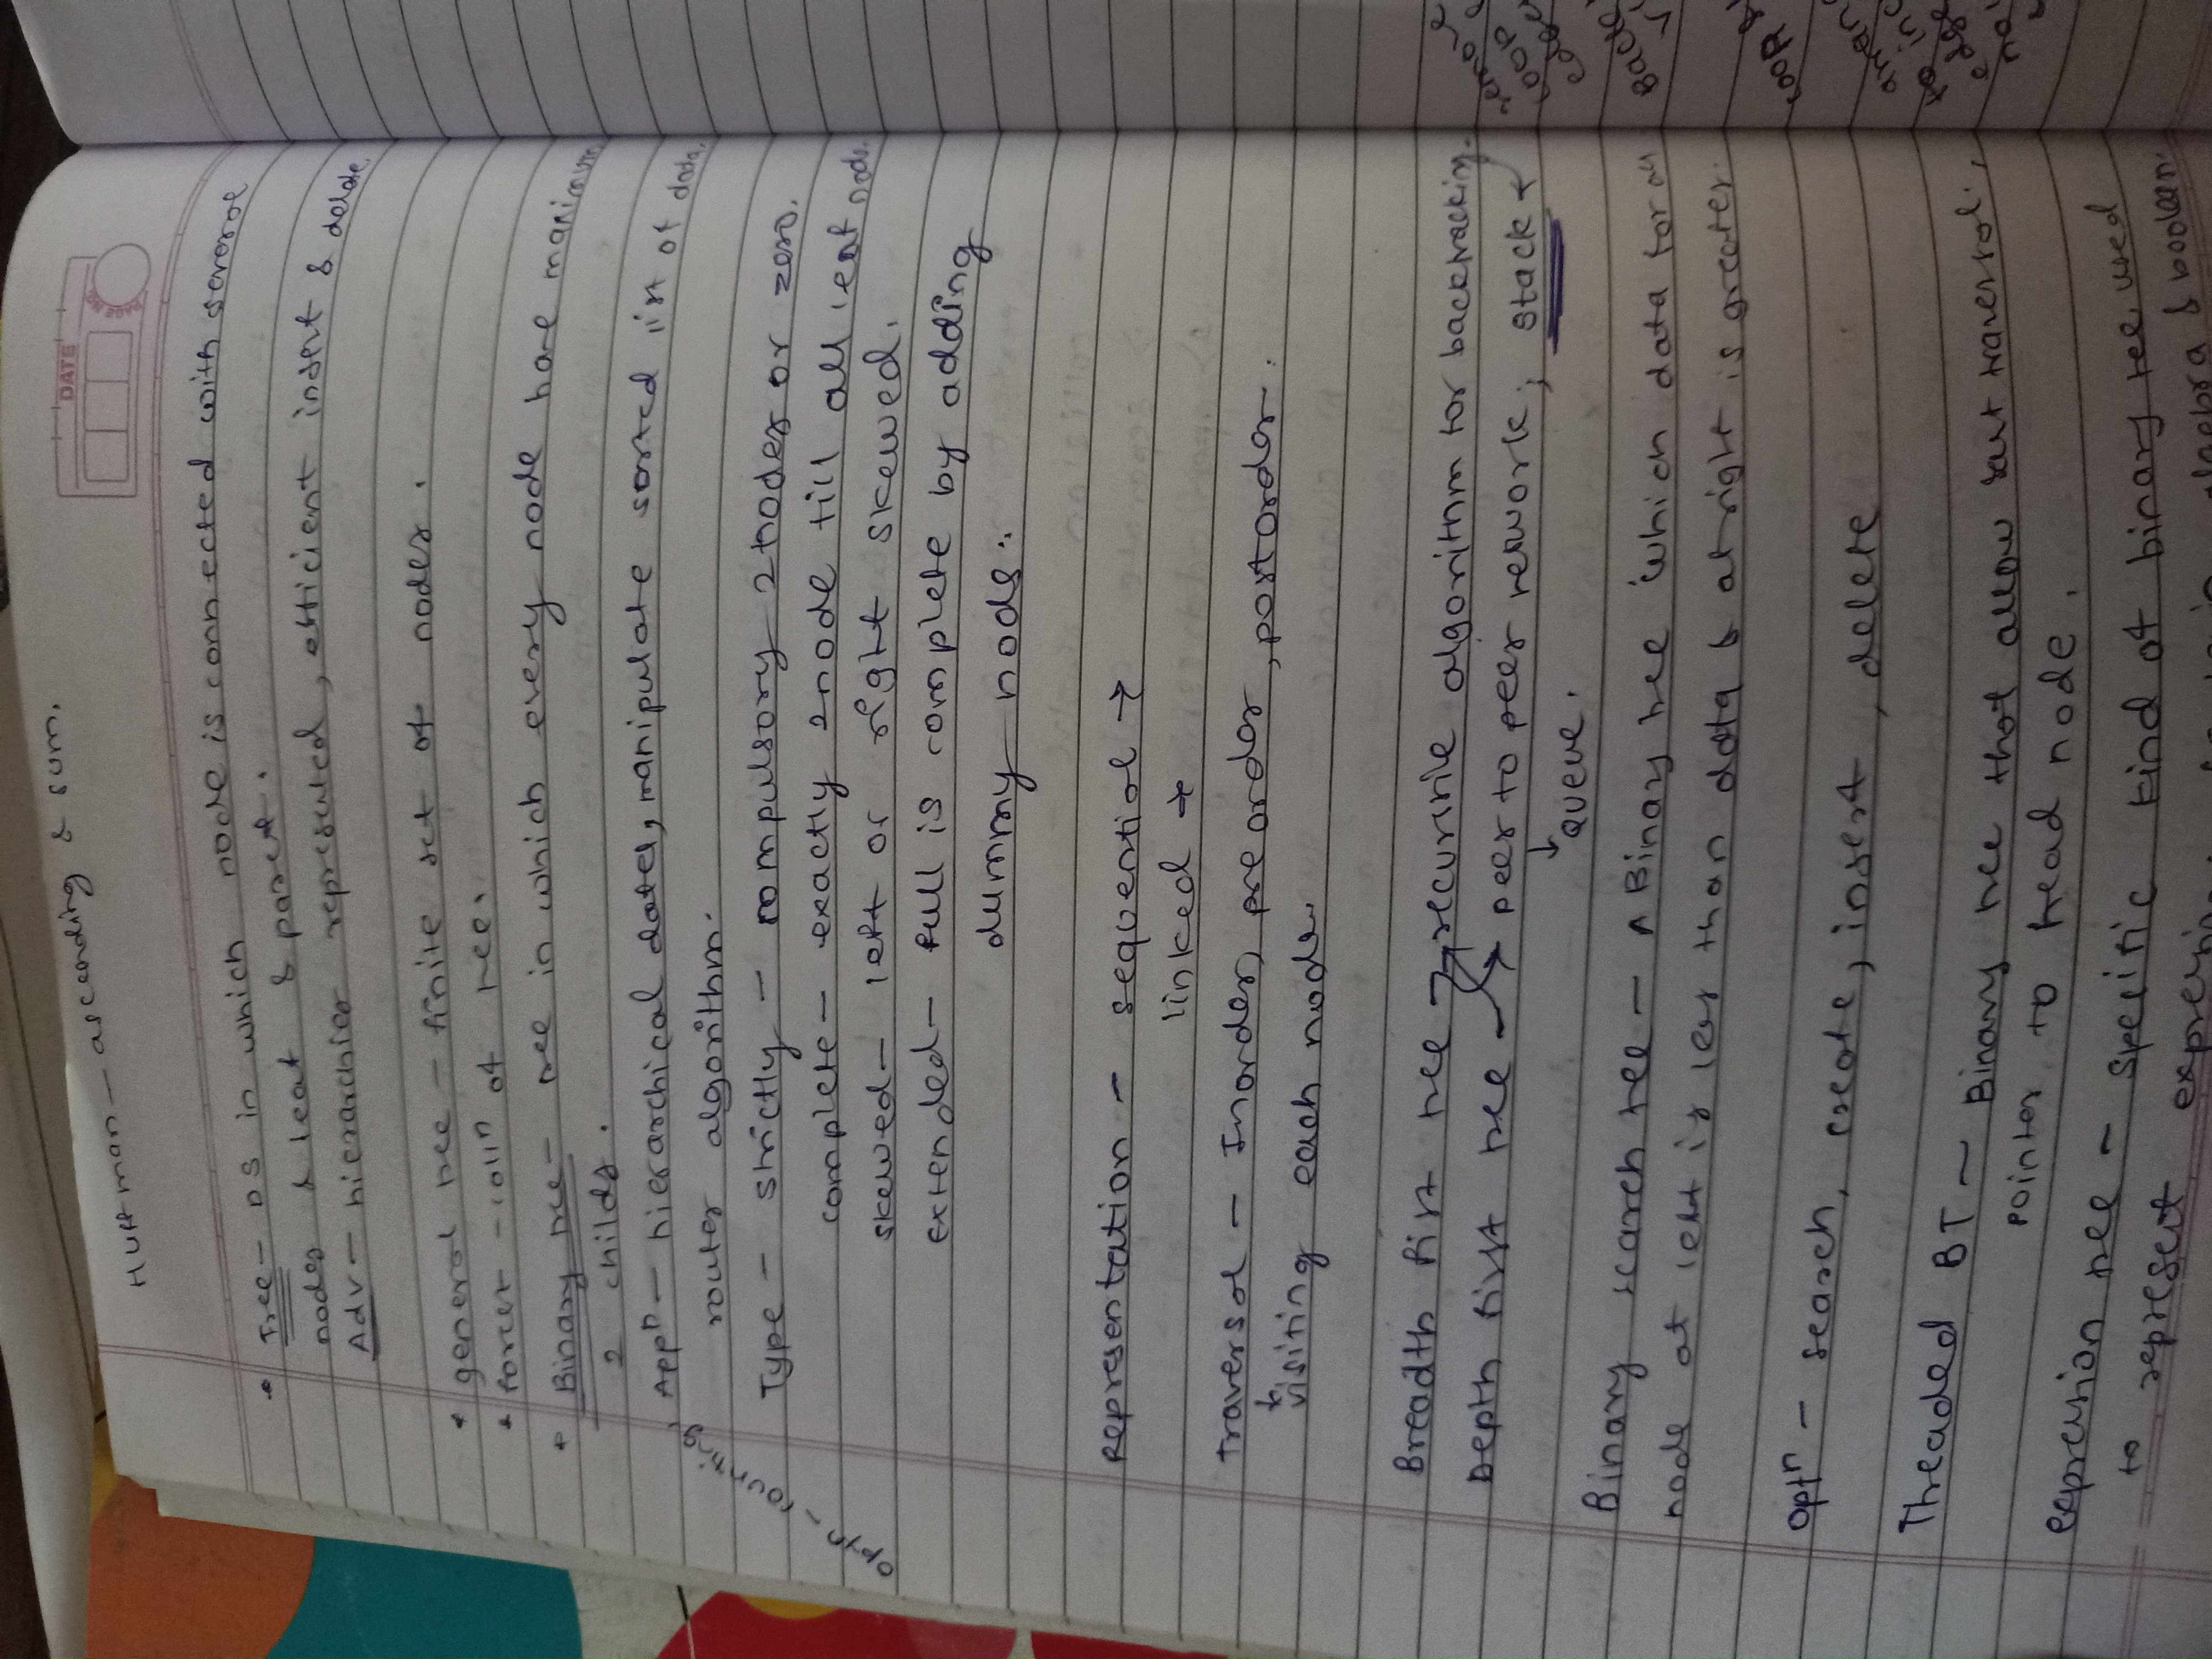 Huffman - ascending & sum.
DATE
PAGE NO.
* Tree - DS in which node is connected with several
nodes & leaf & parent.
Adv - hierarchies represented, efficient insert & delete
* general tree - finite set of nodes.
* forest - colln of tree.
* Binary tree - tree in which every node have maximum
2 childs.
Appn - hierarchical data, manipulate sorted list of data,
router algorithm.
Type - strictly - compulsory 2 nodes or zero.
complete - exactly 2 node till all leaf node.
skewed - left or right skewed.
extended - full is complete by adding
dummy nods.
Representation - sequential →
linked →
traversal - Inorder, preorder, postorder.
visiting each node.
Breadth first tree → recursive algorithm for backtracking.
Depth first tree → peer to peer network; stack
↓
queue.
Binary search tree - A Binary tree which data for all
node at left is less than data & at right is greater.
optn - search, create, insert, delete
Threaded BT - Binary tree that allow fast traversal,
pointer to head node.
expression tree - specific kind of binary tree used
to represent
algebra & boolean.
remove
loop